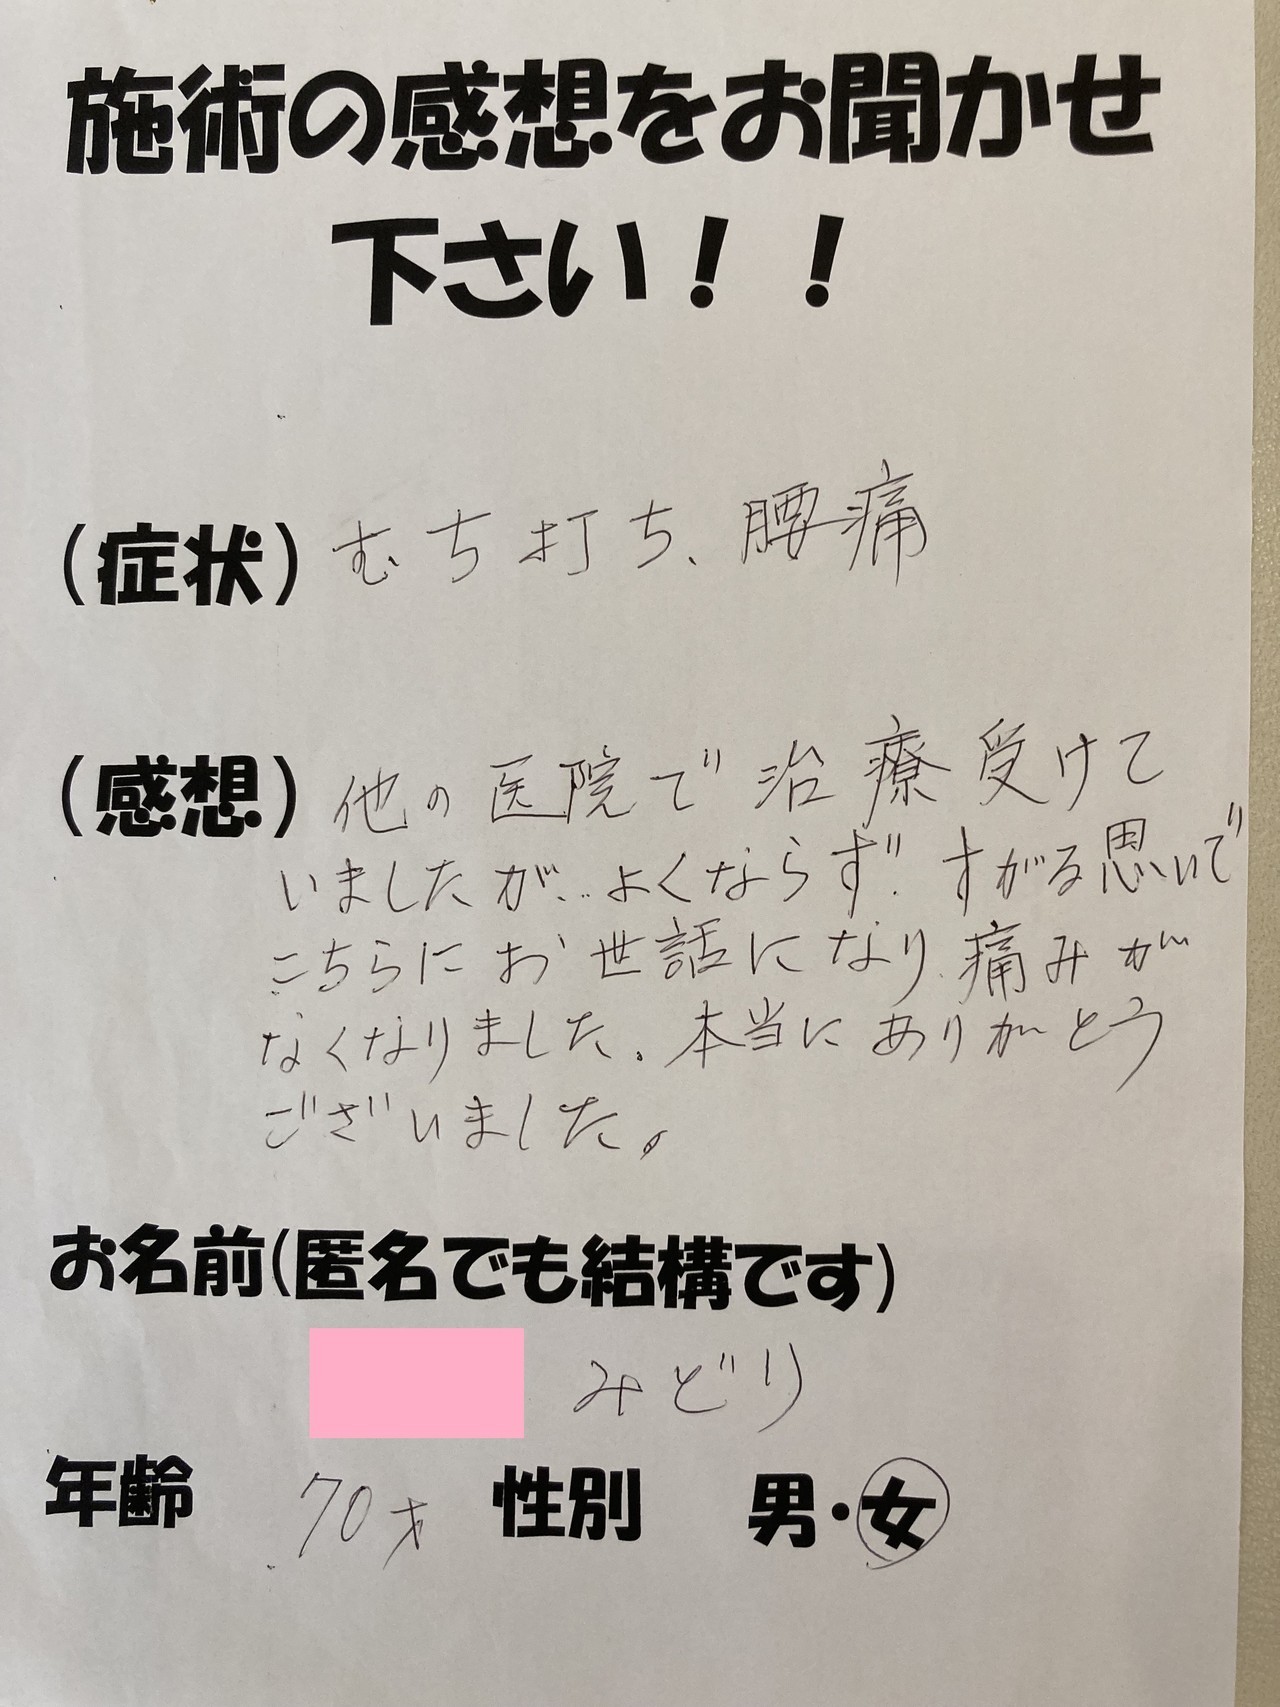 施術の感想をお聞かせ
下さい！！
(症状) むち打ち、腰痛
(感想) 他の医院で治療受けて
いましたが、よくならず、すがる思いで
こちらにお世話になり、痛みが
なくなりました。本当にありがとう
ございました。
お名前(匿名でも結構です)
みどり
年齢 70才 性別 男・女